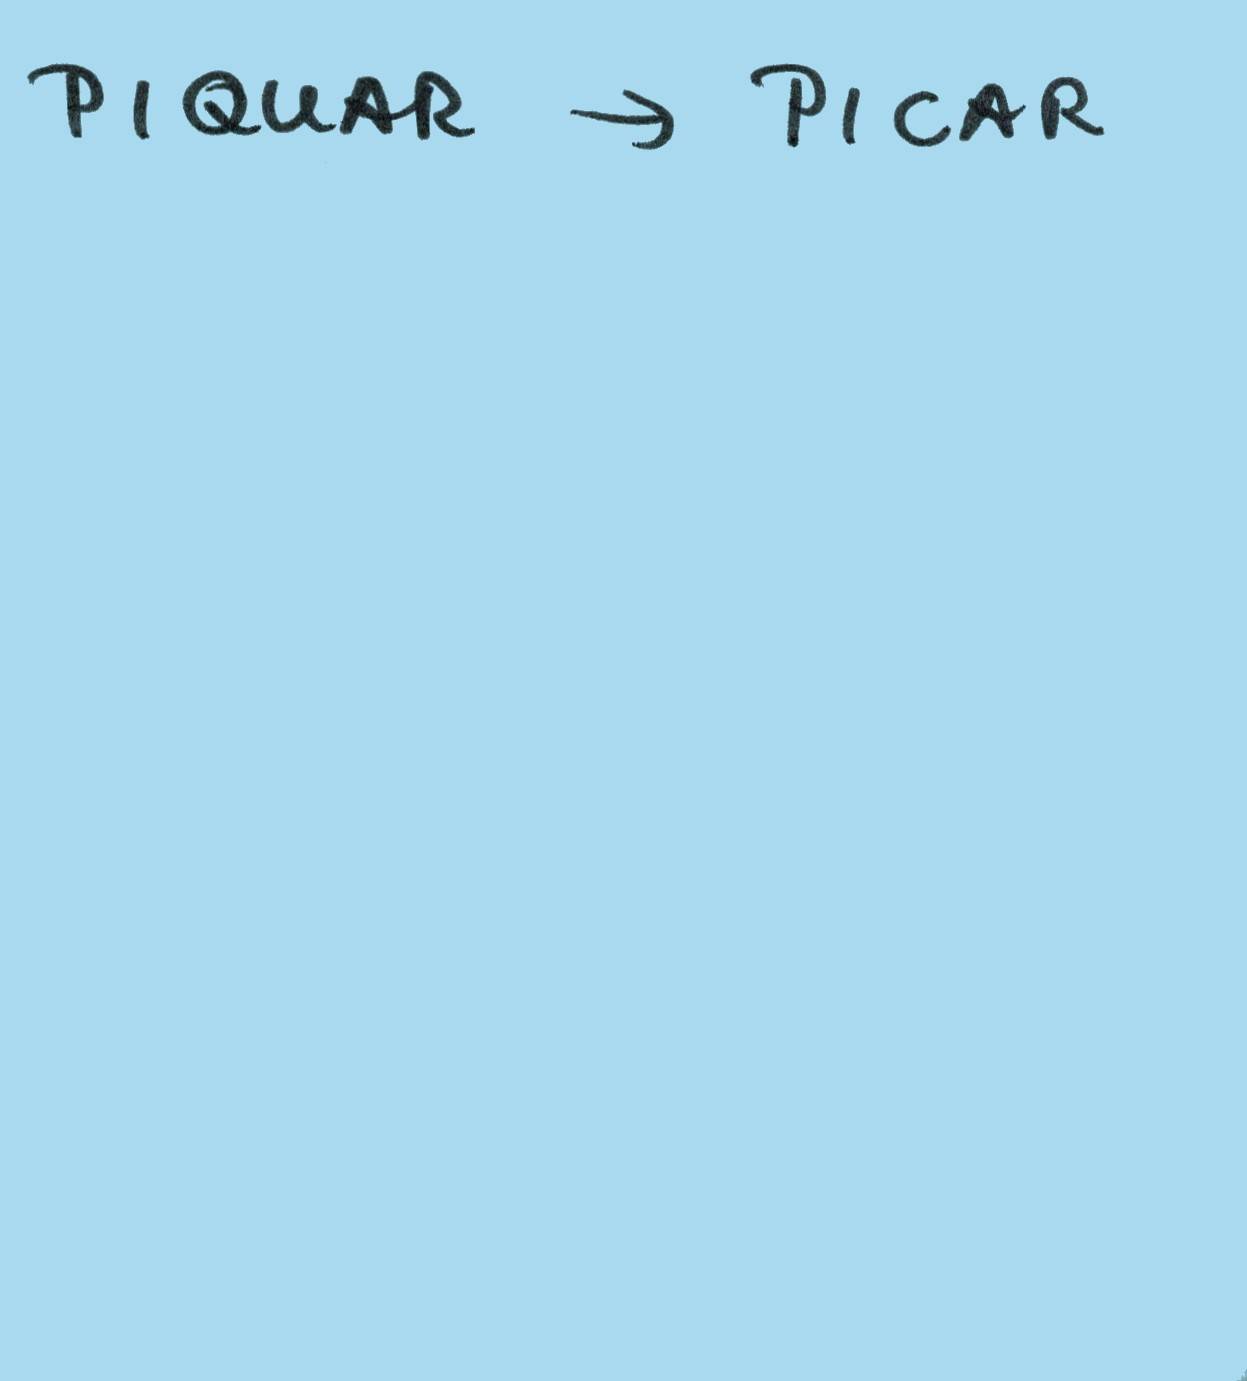 PIQUAR → PICAR